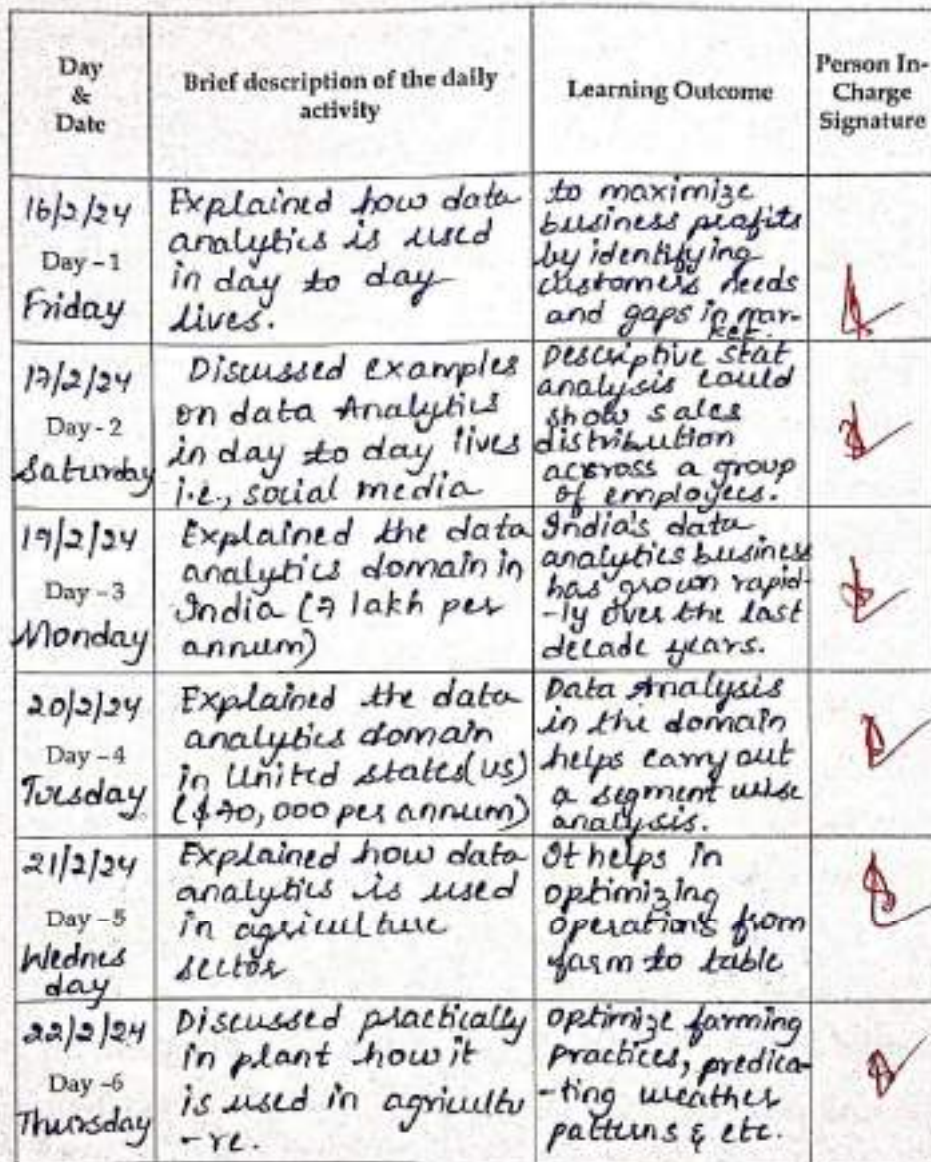 Day
&
Date
Brief description of the daily
activity
Learning Outcome
Person In-
Charge
Signature
16/2/24
Day - 1
Friday
Explained how data
analytics is used
in day to day
lives.
to maximize
business profits
by identifying
customers needs
and gaps in mar-
ket.
17/2/24
Day - 2
Saturday
Discussed examples
on data Analytics
in day to day lives
i.e., social media
Descriptive stat
analysis could
show sales
distribution
across a group
of employees.
19/2/24
Day - 3
Monday
Explained the data
analytics domain in
India (7 lakh per
annum)
India's data
analytics business
has grown rapid-
-ly over the last
decade years.
20/2/24
Day - 4
Tuesday
Explained the data
analytics domain
in United states(us)
($70,000 per annum)
Data Analysis
in the domain
helps carry out
a segment wise
analysis.
21/2/24
Day - 5
Wednes
day
Explained how data
analytics is used
in agriculture
sector
It helps in
optimizing
operations from
farm to table
22/2/24
Day -6
Thursday
Discussed practically
in plant how it
is used in agricultu
-re.
optimize farming
practices, predica-
-ting weather
patterns & etc.